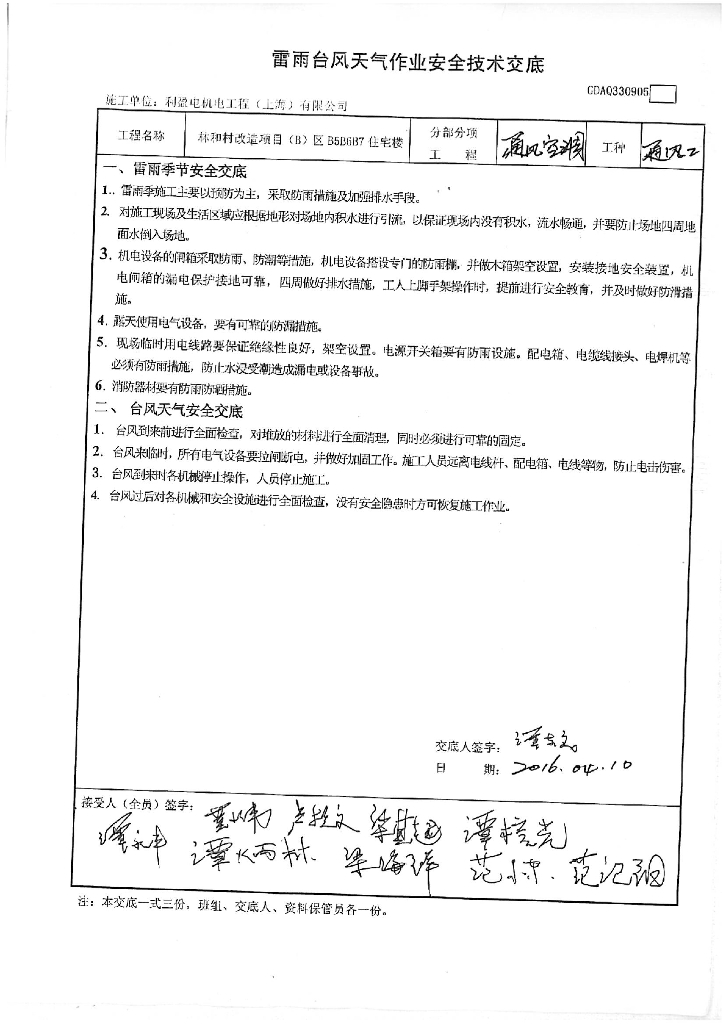 雷雨台风天气作业安全技术交底
GDAQ330905
施工单位：利盈电机电工程（上海）有限公司
工程名称 林和村改造项目（B）区 B5B6B7 住宅楼 分部分项工程 通风空调 工种 通风工
一、雷雨季节安全交底
1. 雷雨季施工主要以预防为主，采取防雨措施及加强排水手段。
2. 对施工现场及生活区域应根据地形对场地内积水进行引流，以保证现场内没有积水，流水畅通，并要防止场地四周地
面水倒入场地。
3. 机电设备的闸箱采取防雨、防潮等措施，机电设备搭设专门的防雨棚，并做木箱架空设置，安装接地安全装置，机
电闸箱的漏电保护接地可靠，四周做好排水措施，工人上脚手架操作时，提前进行安全教育，并及时做好防滑措
施。
4. 露天使用电气设备，要有可靠的防漏措施。
5. 现场临时用电线路要保证绝缘性良好，架空设置。电源开关箱要有防雨设施。配电箱、电缆线接头、电焊机等
必须有防雨措施，防止水浸受潮造成漏电或设备事故。
6. 消防器材要有防雨防晒措施。
二、台风天气安全交底
1. 台风到来前进行全面检查，对堆放的材料进行全面清理，同时必须进行可靠的固定。
2. 台风来临时，所有电气设备要拉闸断电，并做好加固工作。施工人员远离电线杆、配电箱、电线等物，防止电击伤害。
3. 台风到来时各机械停止操作，人员停止施工。
4. 台风过后对各机械和安全设施进行全面检查，没有安全隐患时方可恢复施工作业。
交底人签字：
日 期：2016.04.10
接受人（全员）签字：
注：本交底一式三份，班组、交底人、资料保管员各一份。